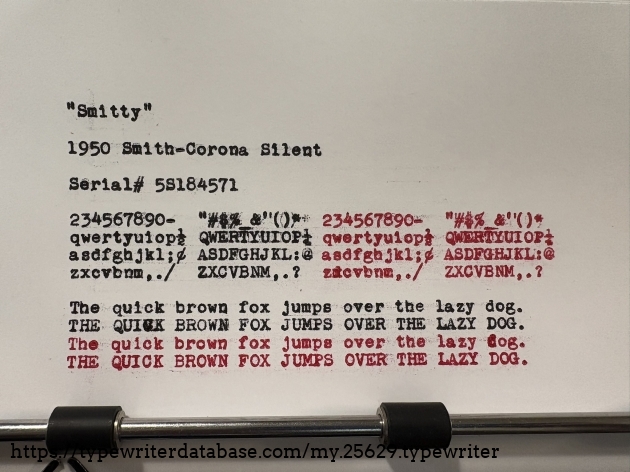 "Smitty"
1950 Smith-Corona Silent
Serial# 5S184571
234567890- "#$%_&'()* 234567890- "#$%_&'()*
qwertyuiop½ QWERTYUIOP¼ qwertyuiop½ QWERTYUIOP¼
asdfghjkl;¢ ASDFGHJKL:@ asdfghjkl;¢ ASDFGHJKL:@
zxcvbnm,./ ZXCVBNM,.? zxcvbnm,./ ZXCVBNM,.?
The quick brown fox jumps over the lazy dog.
THE QUICK BROWN FOX JUMPS OVER THE LAZY DOG.
The quick brown fox jumps over the lazy dog.
THE QUICK BROWN FOX JUMPS OVER THE LAZY DOG.
https://typewriterdatabase.com/my.25629.typewriter